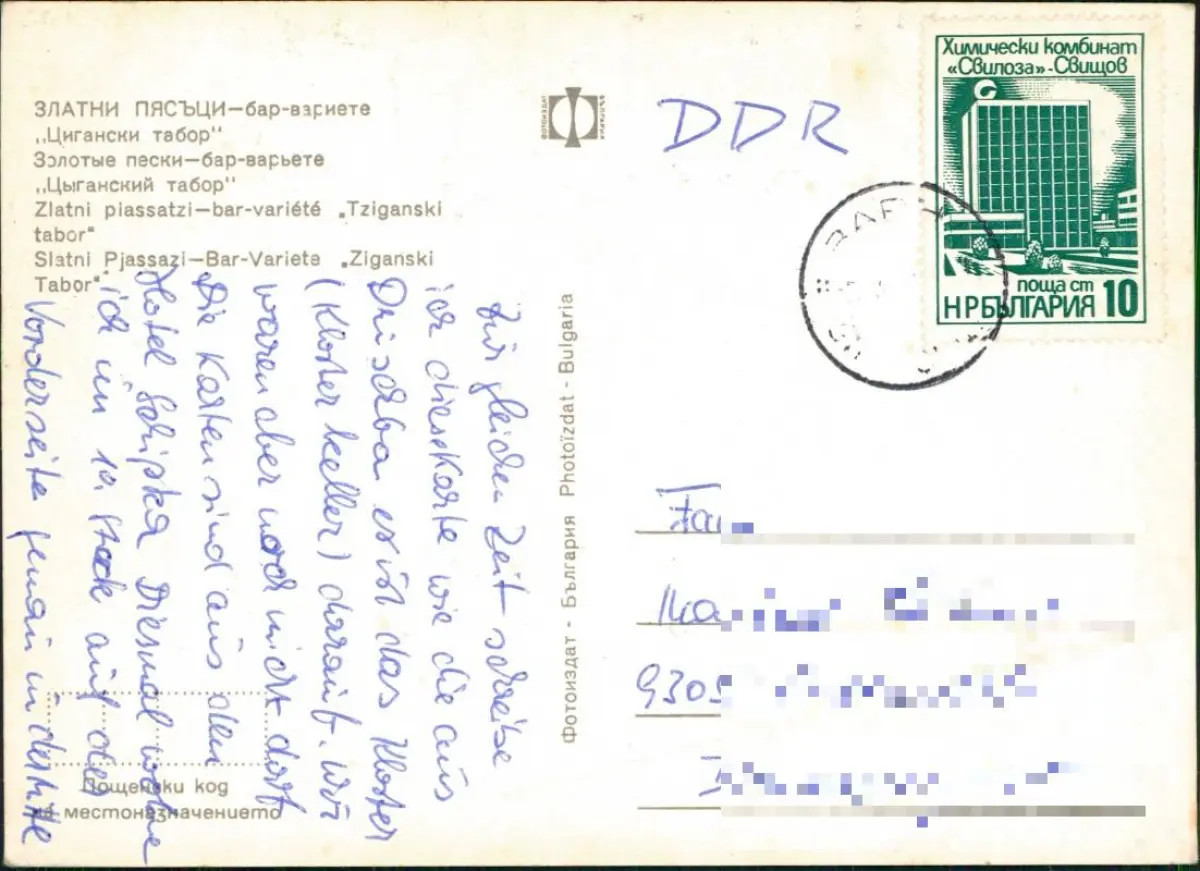 ЗЛАТНИ ПЯСЪЦИ—бар-вариете
„Цигански табор"
Золотые пески—бар-варьете
„Цыганский табор"
Zlatni piassatzi—bar-variété „Tziganski
tabor"
Slatni Pjassazi—Bar-Variete „Ziganski
Tabor"
ФОТОИЗДАТ
DDR
Химически комбинат
«Свилоза»-Свищов
поща ст
НРБЪЛГАРИЯ 10
ВАР
Zur gleichen Zeit schreibe
ich diese Karte wie die aus
es ist das Kloster
(Klosterkeller) darauf. Wir
waren aber noch nicht dort
Die Karten sind aus dem
Hotel Schipka Diesmal wohne
ich im 10. Stock auf der
Vorderseite genau in der Mitte
Фотоиздат - България Photoïzdat - Bulgaria
Fam
930
Пощенски код
на местоназначението